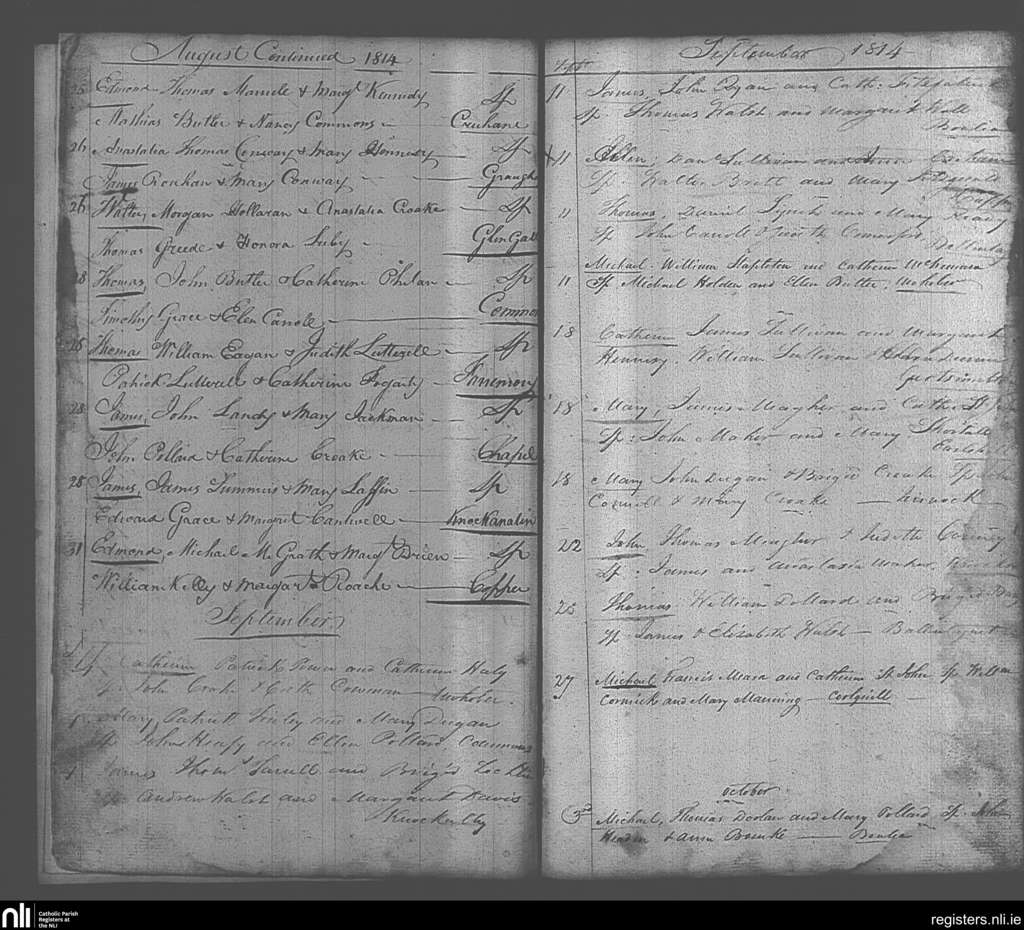 August Continued 1814
25 Edmond Thomas Mansell & Margt Kennedy Sp
Mathias Butler & Nancy Commons Cruhane
26 Anastatia Thomas Conway & Mary Hennesy Sp
James Ronhan & Mary Conway Graugh
26 Walter, Morgan Hollaran & Anastatia Croake Sp
Thomas Greede & Honora Luby Glen Gall
28 Thomas, John Butler & Catherine Phelan Sp
Timothy Grace & Elen Carroll Common
Thomas William Eagan & Judith Luttrell Sp
Patrick Luttrell & Catherine Fogarty Farrenrory
28 James, John Landy & Mary Jackman Sp
John Pollard & Catherine Croake Chapel
28 James, James Tummins & Mary Laffin Sp
Edward Grace & Margret Cantwell Knockanalin
31 Edmond, Michael McGrath & Margt Brien Sp
William Kelly & Margart Roache Copper
September
4 Catherin Patrick Power and Catherin Haly
Sp John Croke & Cath Cowman
Mary, Patrick Finley and Mary Dugan
Sp John Heafy and Ellen Pollard Commons
James Thoms Farrell and Brigd
Sp Andrew Walsh and Margaret Davis
September 1814
Sept
11 James, John Ryan and Cath: Fitzpatrick
Sp Thomas Walsh and Margaret Wall
Boulea
11 Ellen; Danl Sullivan and
Sp. Walter Brett and Mary
11 Thomas, Daniel Lynch and Mary Ready
Sp John Carroll & Cath
Michael. William Stapleton and Catherin McNemara
11 Sp Michael Holden and Ellen Butler;
18 Catherin James Sullivan and Margaret
Hennesy. William Sullivan &
18 Mary, James Magher and Cath: St John
Sp: John Maher and Mary Shortall
18 Mary John Dugan & Brigid Croake Sp John
Connell & Mary Croake
22 John Thomas Meagher & Judith
Sp. James and Anastasia Maher,
25 Thomas. William Dollard and Brigid
Sp James & Elizabeth Walsh
27 Michael Francis Mara and Catherin St John Sp William
Cormick and Mary Manning Coolquill
October
3rd Michael, Thomas Doolan and Mary Pollard Sp. John
& Ann Bourke Boulea
nli
Catholic Parish
Registers at
the NLI
registers.nli.ie